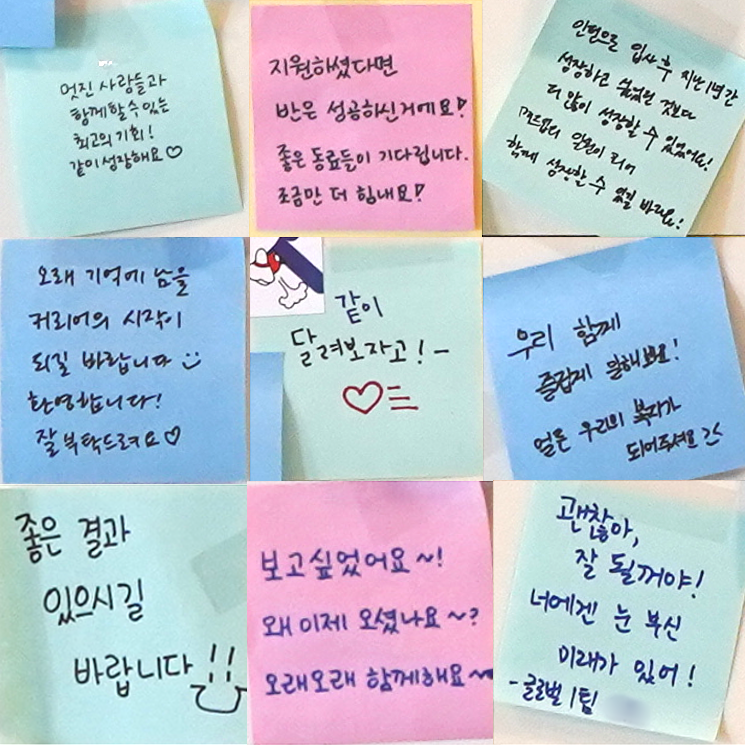 멋진 사람들과
함께할 수 있는
최고의 기회!
같이 성장해요♡
지원하셨다면
반은 성공하신거에요!
좋은 동료들이 기다립니다.
조금만 더 힘내요!
인턴으로 입사 후 지난 1년간
성장하고 싶었던 것보다
더 많이 성장할 수 있었어요!
일원이 되어
함께 성장할 수 있길 바라요!
오래 기억에 남을
커리어의 시작이
되길 바랍니다 :)
환영합니다!
잘 부탁드려요♡
같이
달려보자고!~
♡
우리 함께
즐겁게 일해봐요!
얼른 우리의 복지가
되어주셔요><
좋은 결과
있으시길
바랍니다!!
보고싶었어요~!
왜 이제 오셨나요~?
오래오래 함께해요~
괜찮아,
잘 될꺼야!
너에겐 눈 부신
미래가 있어!
- 글로벌 1팀